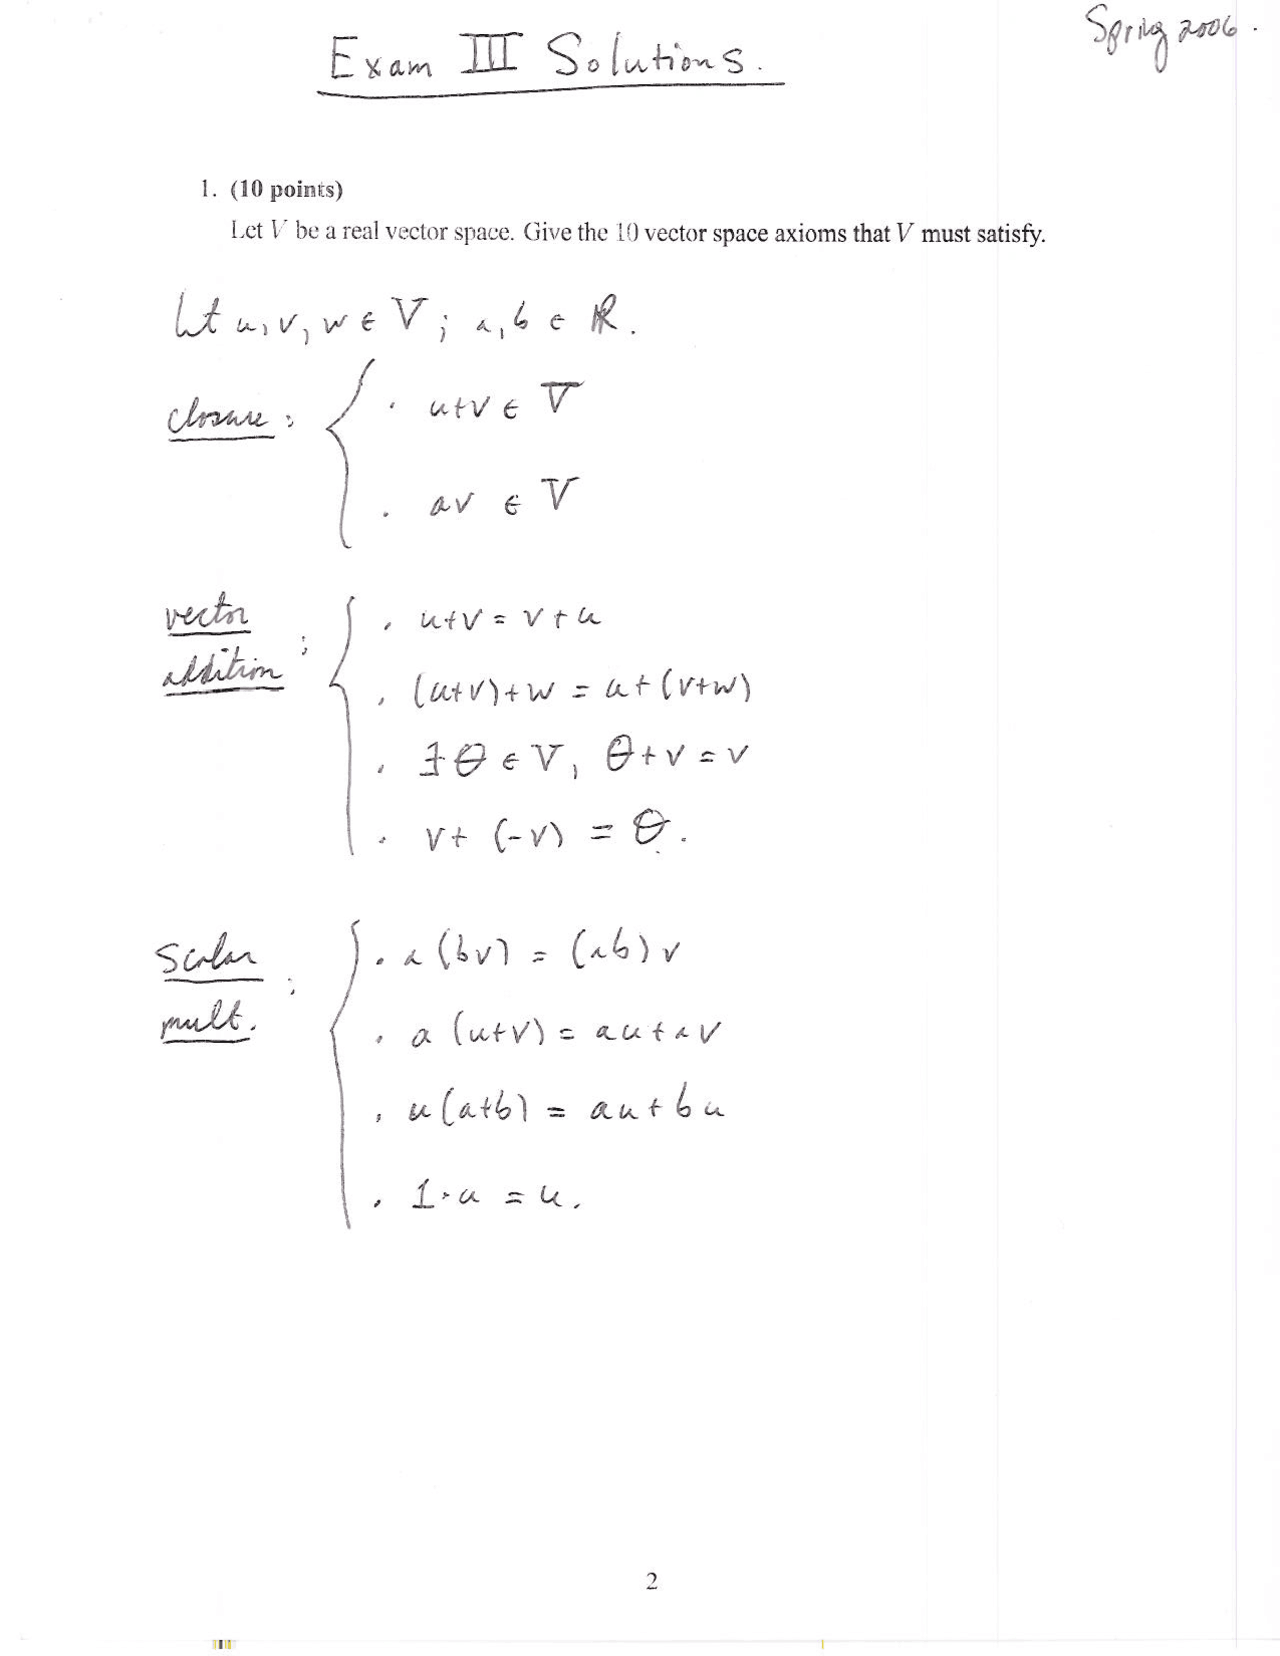 Spring 2006.
Exam III Solutions.
1. (10 points)
Let V be a real vector space. Give the 10 vector space axioms that V must satisfy.
Let u, v, w ∈ V; a, b ∈ ℝ.
closure:
· u+v ∈ V
· av ∈ V
vector
addition:
· u+v = v+u
· (u+v)+w = u+(v+w)
· ∃ θ ∈ V, θ+v = v
· v+ (-v) = θ.
Scalar
mult.:
· a(bv) = (ab)v
· a(u+v) = au+av
· u(a+b) = au+bu
· 1·u = u.
2